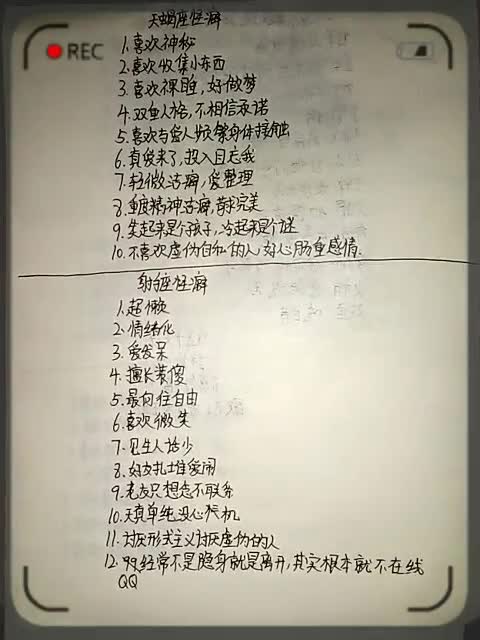 REC
天蝎座怪癖
1.喜欢神秘
2.喜欢收集小东西
3.喜欢裸睡,好做梦
4.双重人格,不相信承诺
5.喜欢与爱人频繁身体接触
6.真爱来了,投入且忘我
7.轻微洁癖,爱整理
8.重度精神洁癖,苛求完美
9.笑起来是个孩子,冷起来是个谜
10.不喜欢虚伪自私的人 好心肠重感情.
射手座怪癖
1.超懒
2.情绪化
3.爱发呆
4.擅长装傻
5.最向往自由
6.喜欢微笑
7.见生人话少
8.好友扎堆爱闹
9.老友只想念不联系
10.天真单纯没心机
11.讨厌形式主义讨厌虚伪的人
12.经常不是隐身就是离开,其实根本就不在线
QQ